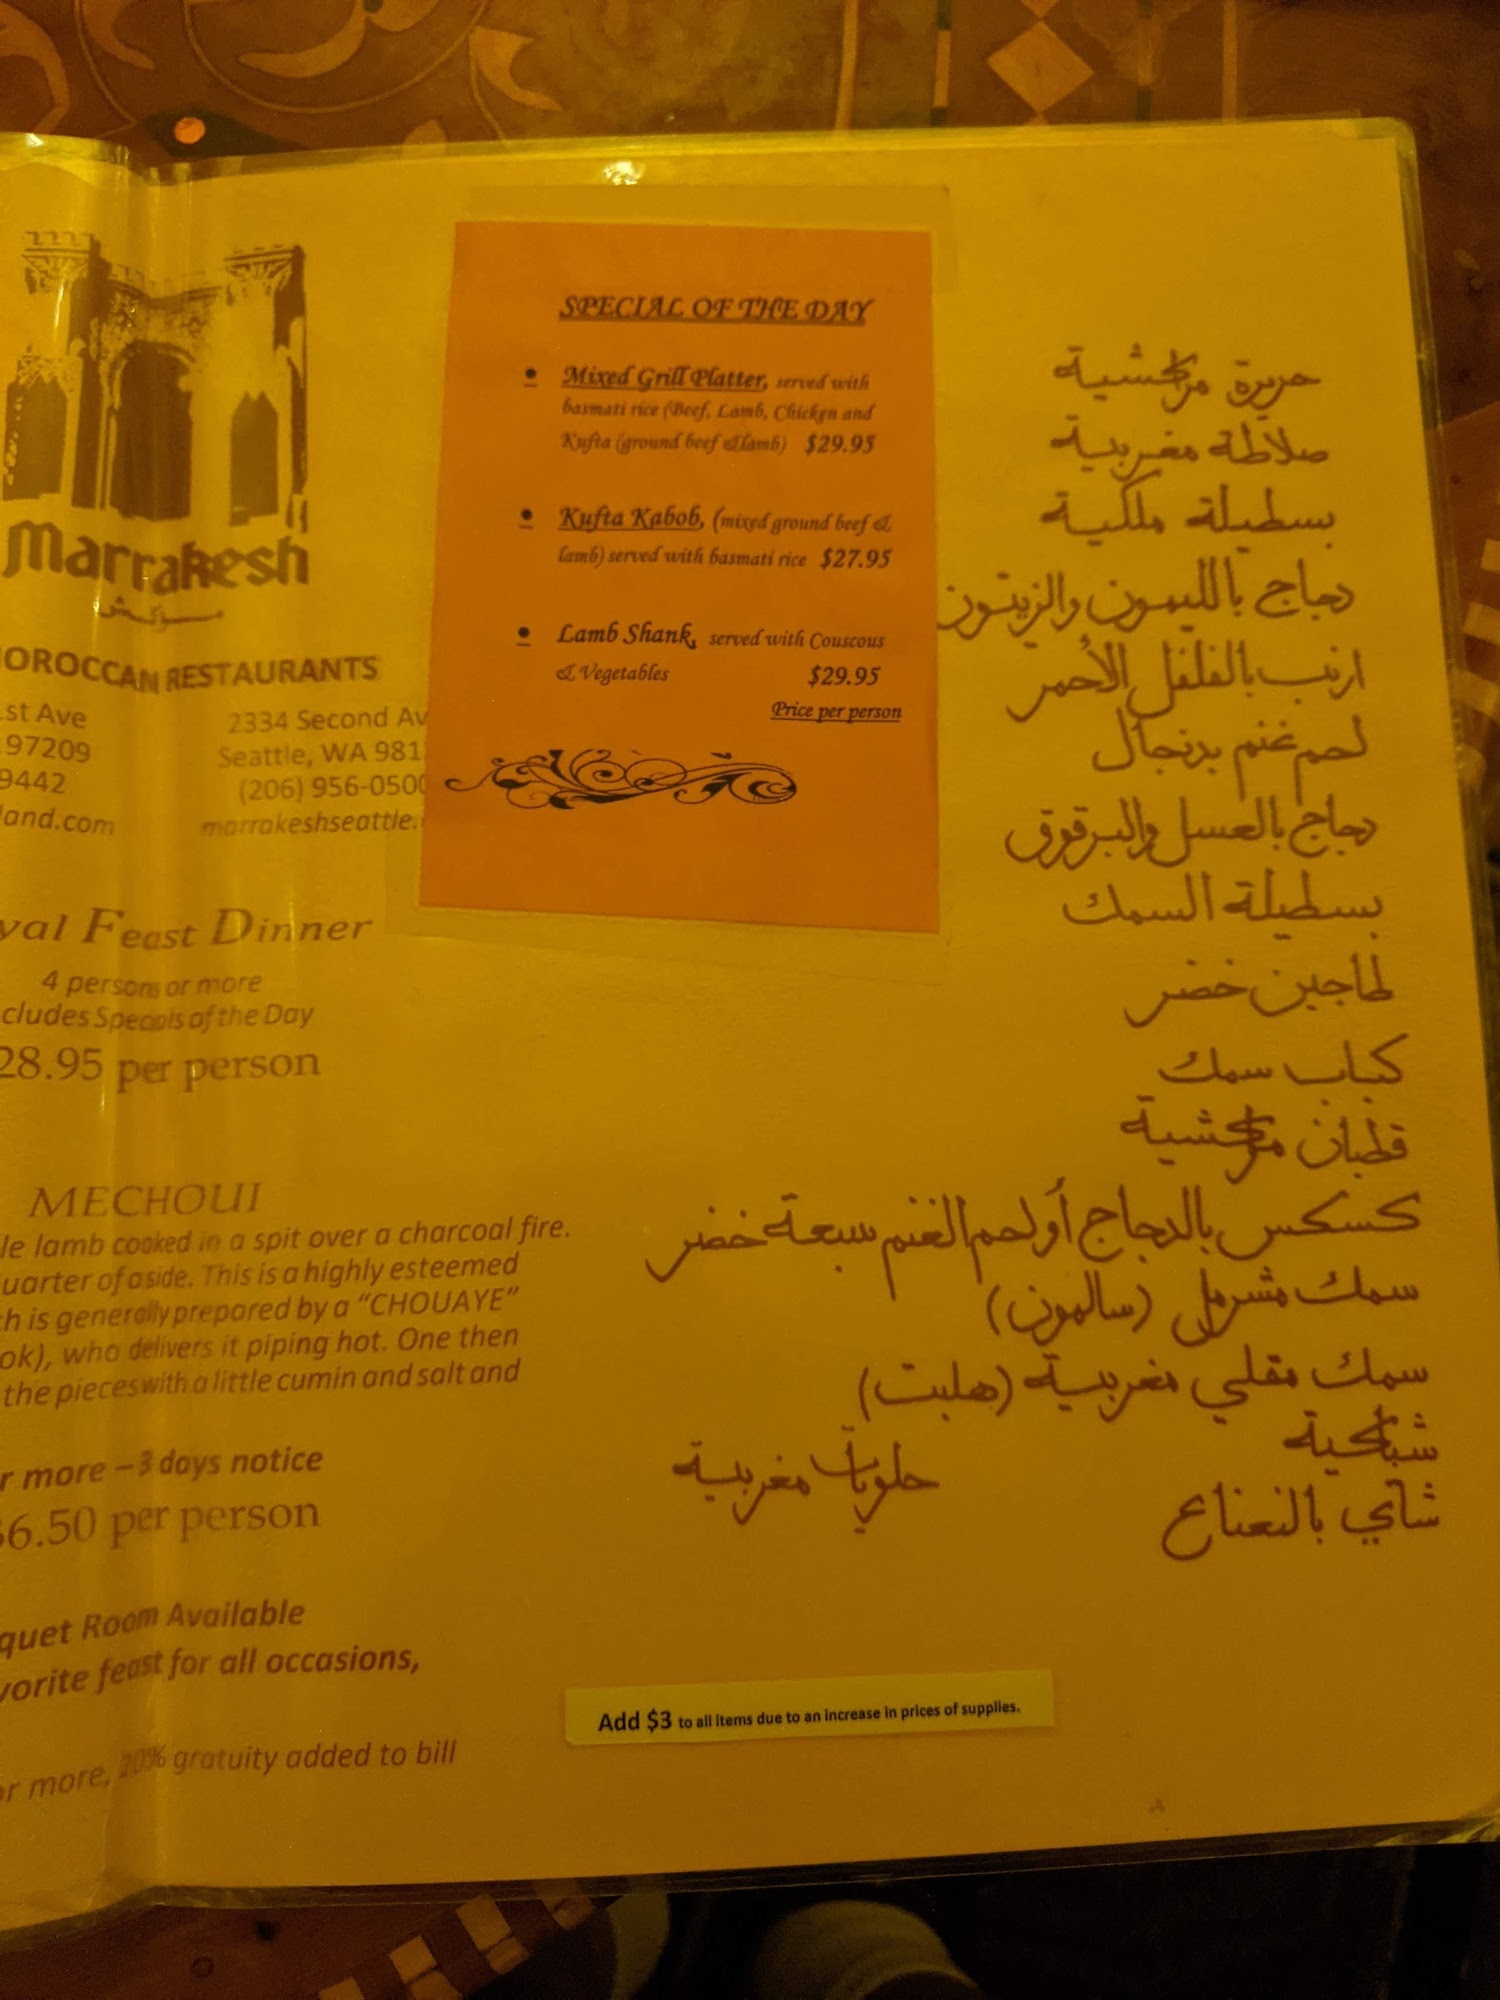 Marrakesh
مراكش
MOROCCAN RESTAURANTS
1st Ave
97209
9442
land.com
2334 Second Av
Seattle, WA 981
(206) 956-0500
marrakeshseattle.
Feast Dinner
4 persons or more
cludes Specials of the Day
28.95 per person
MECHOUI
le lamb cooked in a spit over a charcoal fire.
uarter of a side. This is a highly esteemed
h is generally prepared by a “CHOUAYE”
ok), who delivers it piping hot. One then
the pieces with a little cumin and salt and
r more – 3 days notice
6.50 per person
quet Room Available
vorite feast for all occasions,
or more, 20% gratuity added to bill
SPECIAL OF THE DAY
• Mixed Grill Platter, served with
basmati rice (Beef, Lamb, Chicken and
Kufta (ground beef & lamb) $29.95
• Kufta Kabob, (mixed ground beef &
lamb) served with basmati rice $27.95
• Lamb Shank, served with Couscous
& Vegetables $29.95
Price per person
حريرة مركشية
صلاطة مغربية
بسطيلة ملكية
دجاج بالليمون والزيتون
ارنب بالفلفل الأحمر
لحم غنم بدنجال
دجاج بالعسل والبرقوق
بسطيلة السمك
طاجين خضر
كباب سمك
قطبان مركشية
كسكس بالدجاج أو لحم الغنم سبعة خضر
سمك مشرمل (سالمون)
سمك مقلي مغربية (هلبت)
شبكية
حلويات مغربية
شاي بالنعناع
Add $3 to all items due to an increase in prices of supplies.